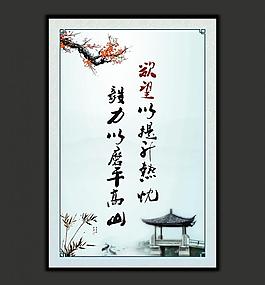 欲望以提升熱忱
毅力以磨平高山